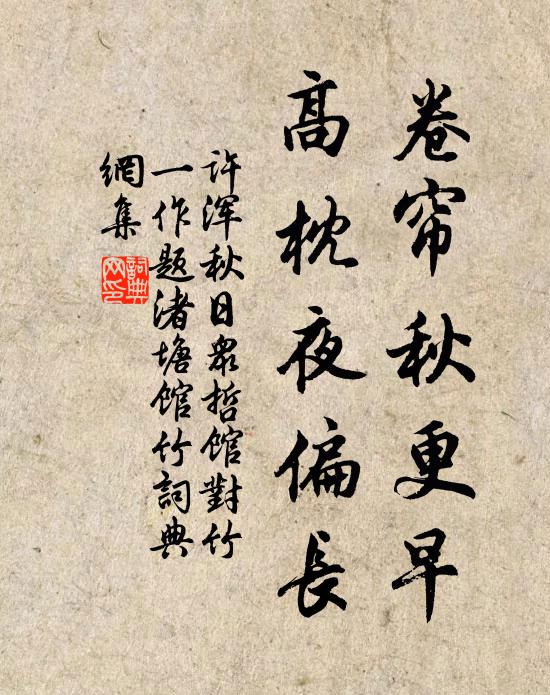 卷帘秋更早
高枕夜偏長
许浑秋日眾哲馆對竹
一作题渚塘馆竹詞典
網集
詞典網印